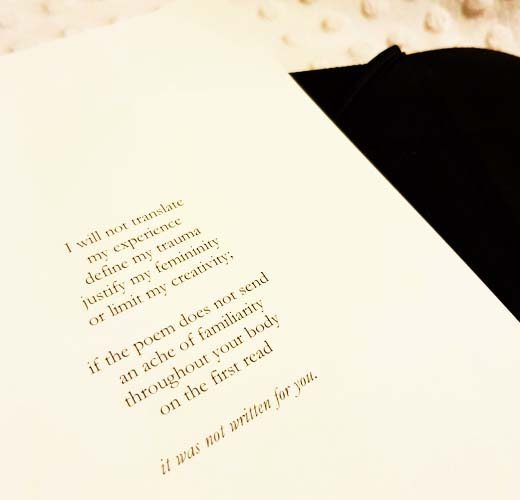 I will not translate
my experience
define my trauma
justify my femininity
or limit my creativity;
if the poem does not send
an ache of familiarity
throughout your body
on the first read
it was not written for you.